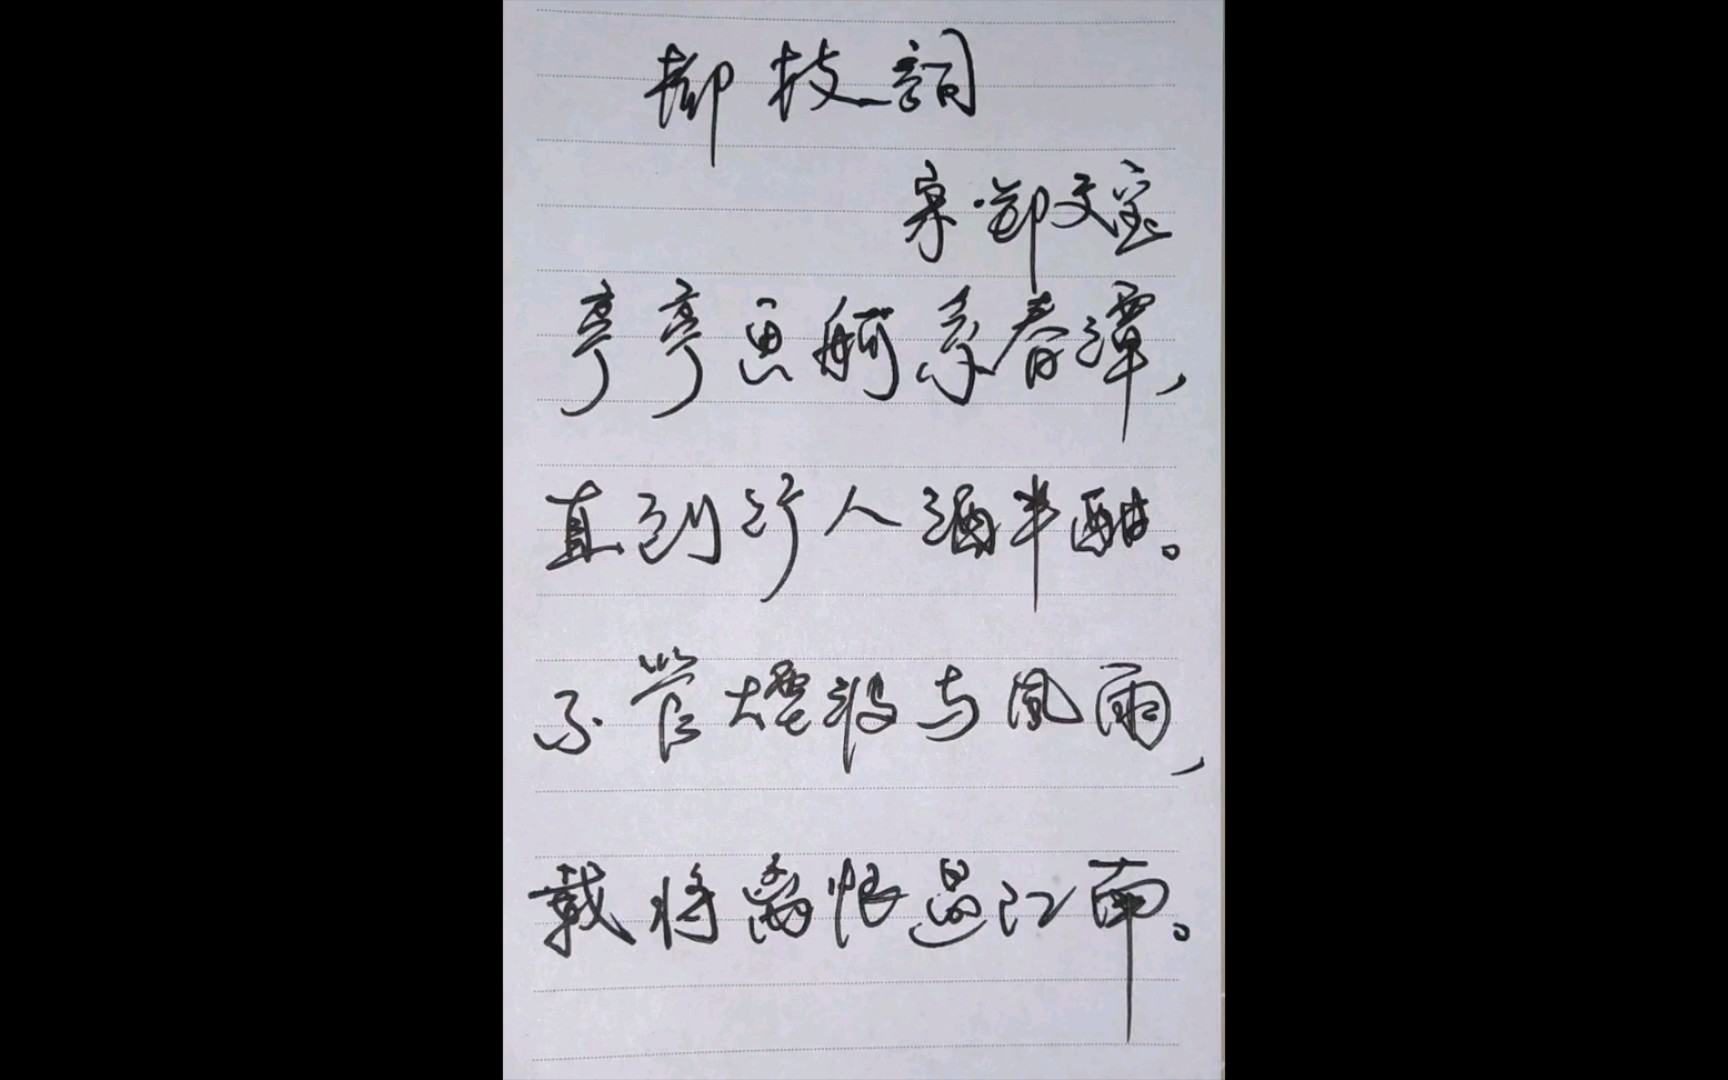 柳枝詞
宋·郑文宝
亭亭画舸系春潭,
直到行人酒半酣。
不管煙波与風雨,
載将离恨過江南。